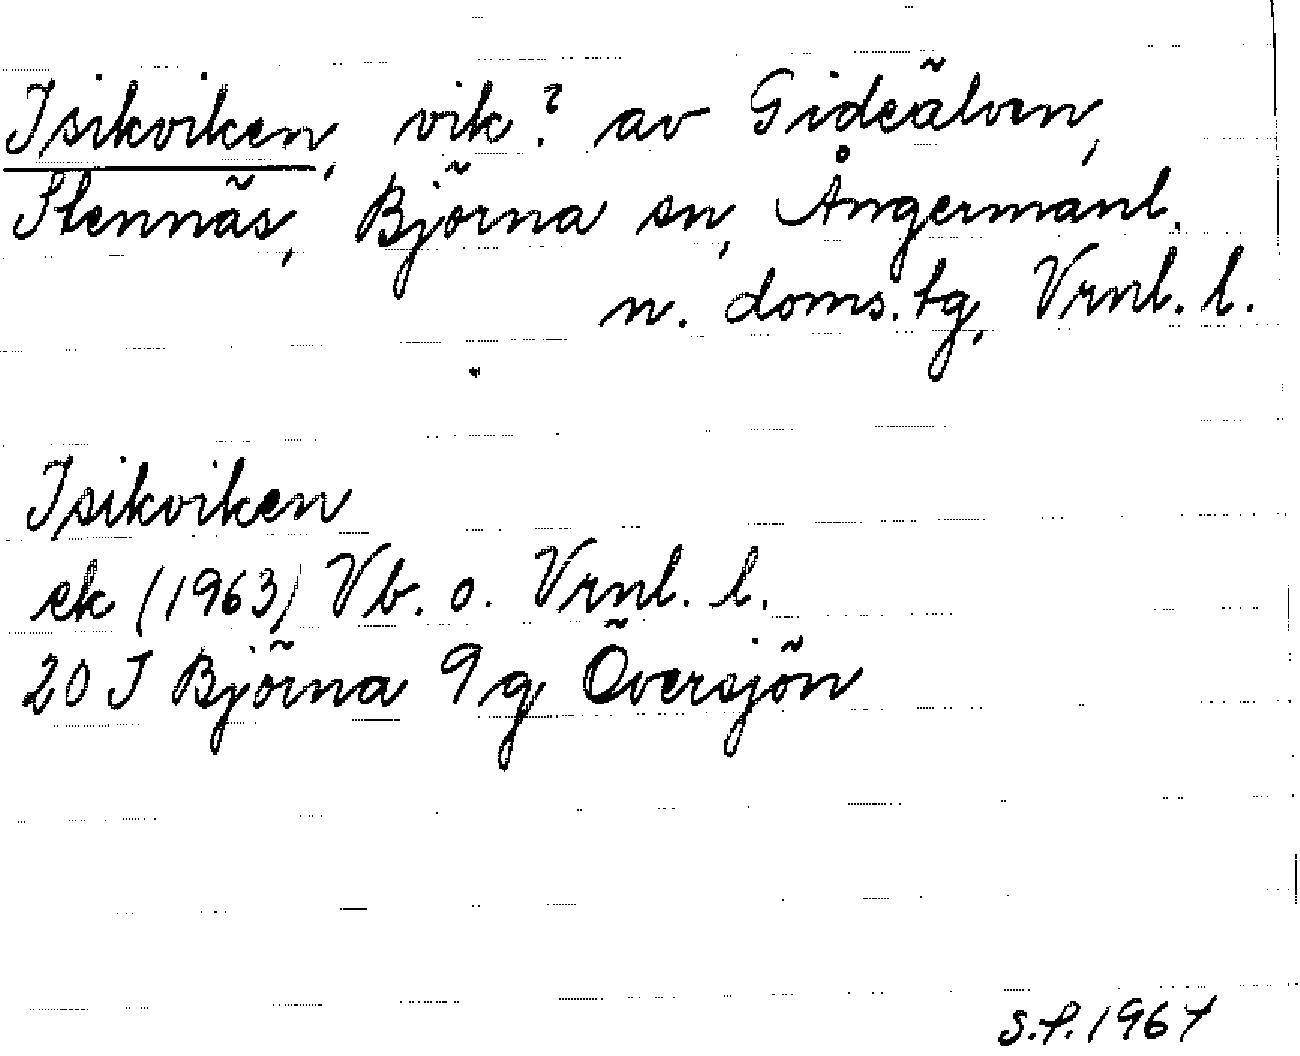 Isikviken, vik? av Gideälven,
Stennäs, Björna sn, Ångermanl.
n. doms. tg, Vrnl. l.
Isikviken
ek (1963) Vb. o. Vrnl. l.
20 I Björna 9 g Översjön
S.P. 1967